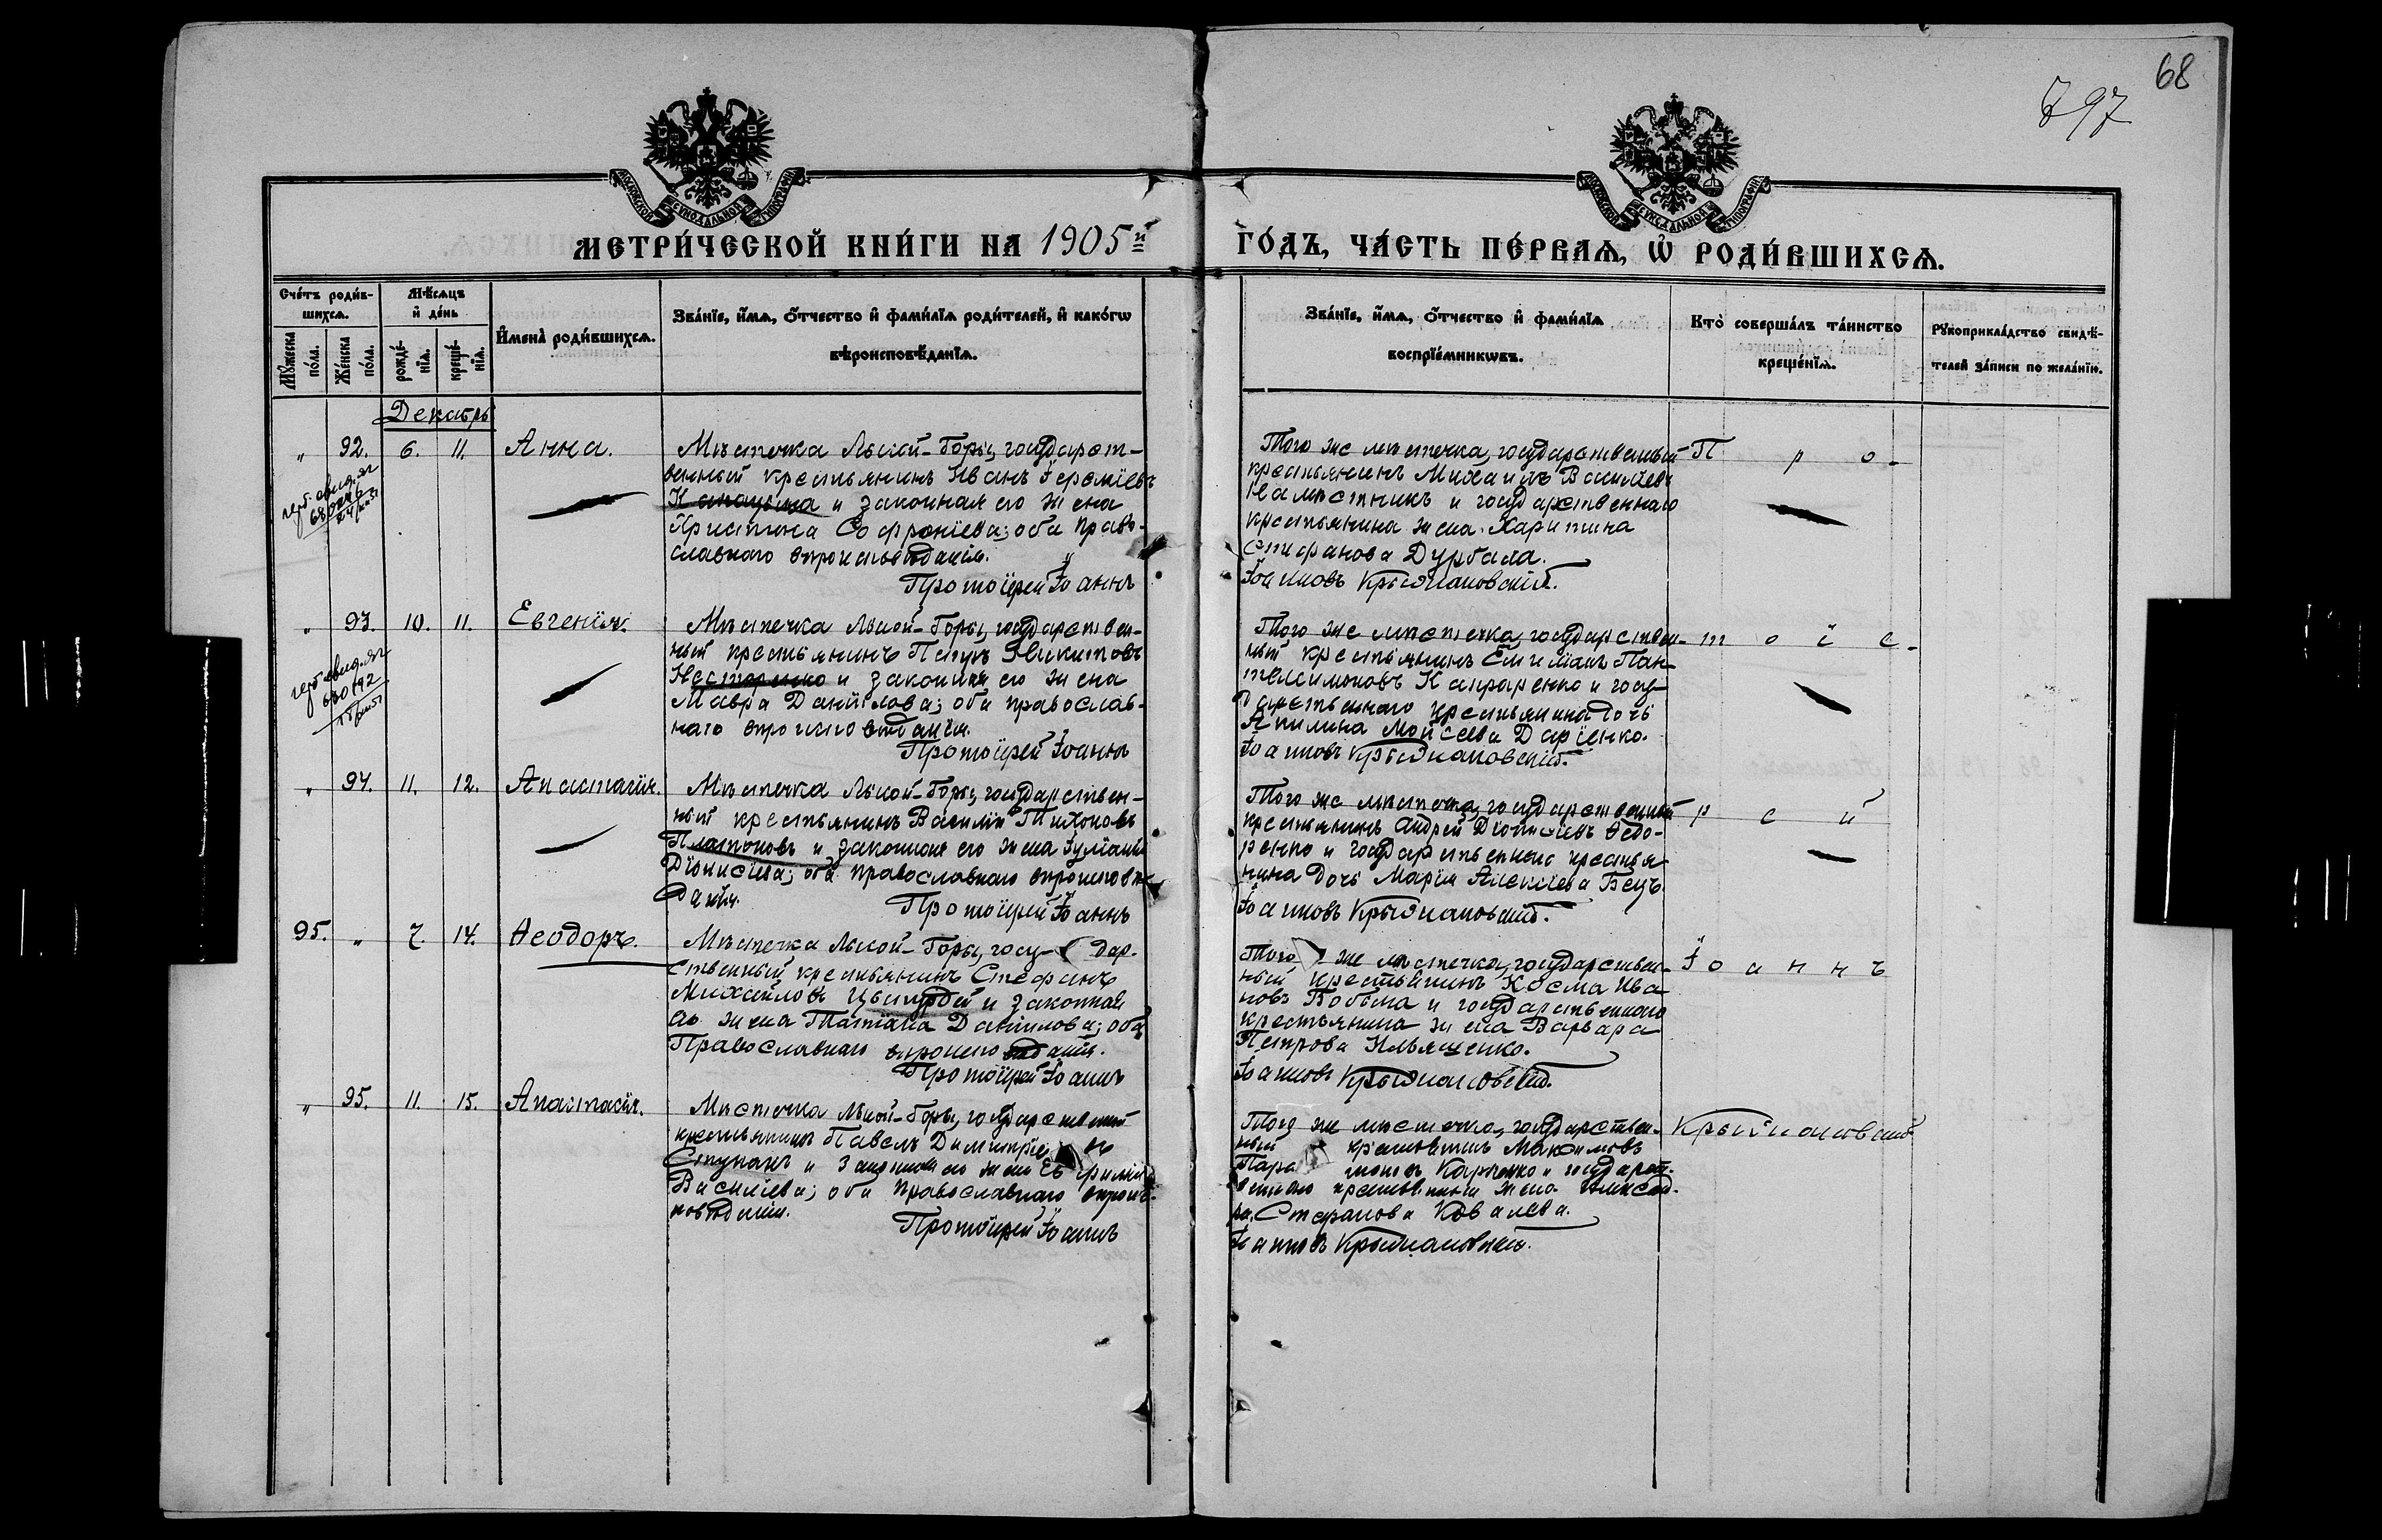 68
797
МЕТРИ́ЧЕСКОЙ КНИ́ГИ НА 1905й
ГО́ДЪ, ЧА́СТЬ ПЕ́РВАѦ, Ѡ҆ РОДИ́ВШИХСѦ.
Сче́тъ роди́в-
шихсѧ.
Мꙋ́жеска по́ла.
Же́нска по́ла.
Мѣ́сѧцъ и҆ де́нь
рожде́-
нїѧ.
креще́-
нїѧ.
И҆мена̀ роди́вшихсѧ.
Зва́нїе, и҆́мѧ, ѻ҆́тчество и҆ фами́лїѧ роди́телей, и҆ како́гѡ
вѣроисповѣ́данїѧ.
Зва́нїе, и҆́мѧ, ѻ҆́тчество и҆ фами́лїѧ
воспрїе́мникѡвъ.
Кто̀ соверша́лъ та́инство
креще́нїѧ.
Рꙋкоприкла́дство свидѣ́-
телей за́писи по жела́нїю.
Декабрь
" 92. 6. 11. Анна.
Мѣстечка Лысой-Горы, государст-
венный крестьянинъ Иванъ Іереміевъ
и законная его жена
Христина Софроніева; оба право-
славнаго вѣроисповѣданія.
Протоіерей Іоаннъ
Того же мѣстечка, государственный
крестьянинъ Михаилъ Васильевъ
Намѣстникъ и государственнаго
крестьянина жена Харитина
Стефанова Дурбала.
Іоанновъ Крыжановскій.
П р о-
" 93. 10. 11. Евгенія.
Мѣстечка Лысой-Горы, государствен-
ный крестьянинъ Петръ Никитовъ
Нестеренко и законная его жена
Мавра Даніилова; оба православ-
наго вѣроисповѣданія.
Протоіерей Іоаннъ
Того же мѣстечка, государствен-
ный крестьянинъ Емиліанъ Пан-
телеимоновъ и госу-
дарственнаго крестьянина дочь
Акилина Мойсеева Даріенко.
Іоанновъ Крыжановскій.
т о і е-
" 94. 11. 12. Анастасія.
Мѣстечка Лысой-Горы, государствен-
ный крестьянинъ Василій Тихоновъ
Платоновъ и законная его жена Іуліанія
Діонисіева; оба православнаго вѣроисповѣ-
данія.
Протоіерей Іоаннъ
Того же мѣстечка, государственный
крестьянинъ Андрей Діонисіевъ Ѳедо-
ренко и государственнаго крестья-
нина дочь Марія Алексіева
Іоанновъ Крыжановскій.
р е й
95. " 7. 14. Ѳеодоръ.
Мѣстечка Лысой-Горы, госу- дар-
ственный крестьянинъ Стефанъ
Михайловъ и законная
его жена Татіана Даніилова; оба
Православнаго вѣроисповѣданія.
Протоіерей Іоаннъ
Того же мѣстечка, государствен-
ный крестьянинъ Косма Ива
новъ и государственнаго
крестьянина жена Варвара
Петрова Ильященко.
Іоанновъ Крыжановскій.
І о а н н ъ
" 95. 11. 15. Анастасія.
Мѣстечка Лысой-Горы, государственный
крестьянинъ Павелъ Димитріевъ
Ступакъ и законная его жена Евфимія
Василіева; оба православнаго вѣроис-
повѣданія.
Протоіерей Іоаннъ
Того же мѣстечка, государствен-
ный крестьянинъ
Карпенко и государст-
веннаго крестьянина жена Александ-
ра Стефанова Ковалева.
Іоанновъ Крыжановскій.
Крыжановскій